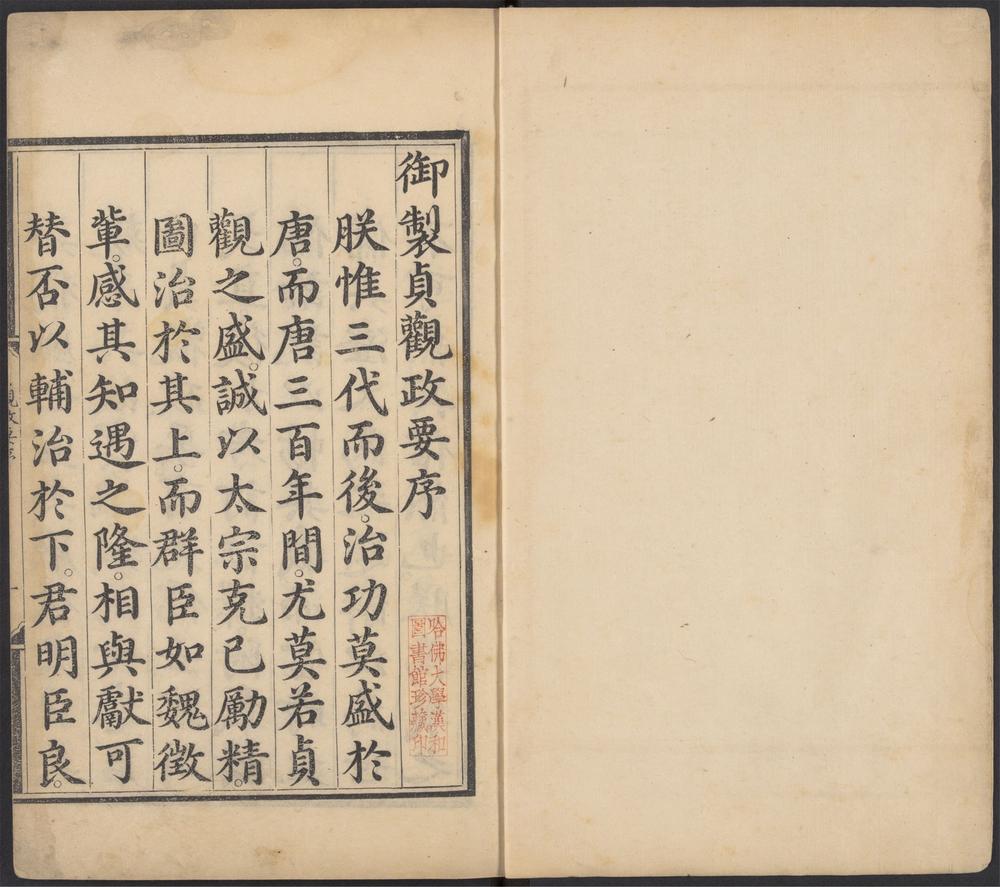 御製貞觀政要序
朕惟三代而後。治功莫盛於
唐。而唐三百年間。尤莫若貞
觀之盛。誠以太宗克己勵精。
圖治於其上。而群臣如魏徵
軰。感其知遇之隆。相與獻可
替否以輔治於下。君明臣良。
哈佛大學漢和
圖書館珍藏印